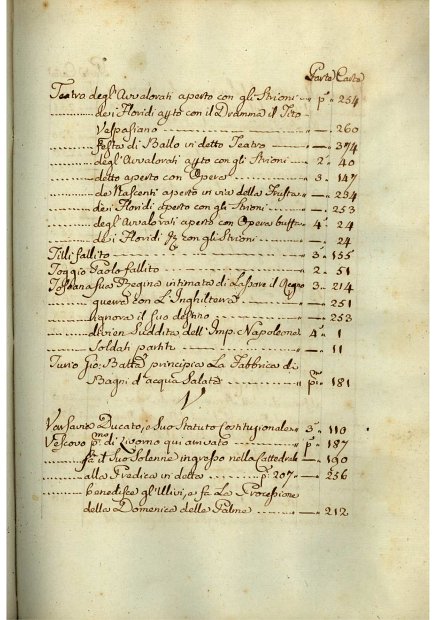 Parte Carte
Teatro degl'Avvalorati aperto con gli Strioni — pᵃ 254
de i Floridi apto con il Dramma il Tito
Vespasiano — 260
festa di Ballo in detto Teatro — 374
degl'Avvalorati apto con gli Strioni — 2ᵃ 40
detto aperto con Opera — 3ᵃ 147
de Nascenti aperto in via della — 234
dei Floridi aperto con gli Strioni — 253
degl'Avvalorati aperto con Opera buffa — 4ᵃ 24
de i Floridi con gli Strioni — 24
Tilli fallito — 3ᵃ 155
Toggio Paolo fallito — 2ᵃ 51
Toscana sua Regina intimata di Lassare il Regno 3ᵃ 214
guerra con L'Inghilterra — 251
ignora il suo destino — 253
divien Suddita dell'Imp. Napoleone 4ᵃ 1
Soldati partiti — 11
Turio Gio: Battᵃ principia La Fabbrica di
Bagni d'acqua Salata — pᵃ 181
V
Varsavia Ducato, e Suo Statuto Costituzionale 3ᵃ 110
Vescovo pmo di Livorno qui arrivato — pᵃ 187
fà il Suo Solenne ingresso nella Cattedrale — 190
alla Predica in detta — pᵃ 207 — 256
benedisce gl'Ulivi, e fà La Processione
della Domenica delle Palme — 212